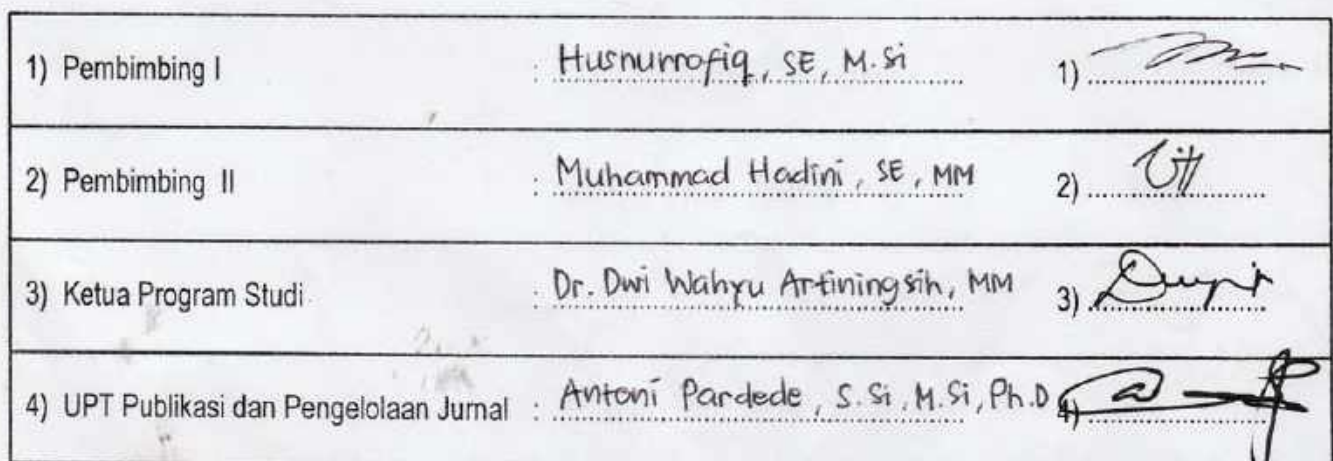 1) Pembimbing I : Husnurrofiq, SE, M.Si 1)
2) Pembimbing II : Muhammad Hadini, SE, MM 2)
3) Ketua Program Studi : Dr. Dwi Wahyu Artiningsih, MM 3)
4) UPT Publikasi dan Pengelolaan Jurnal : Antoni Pardede, S.Si, M.Si, Ph.D 4)